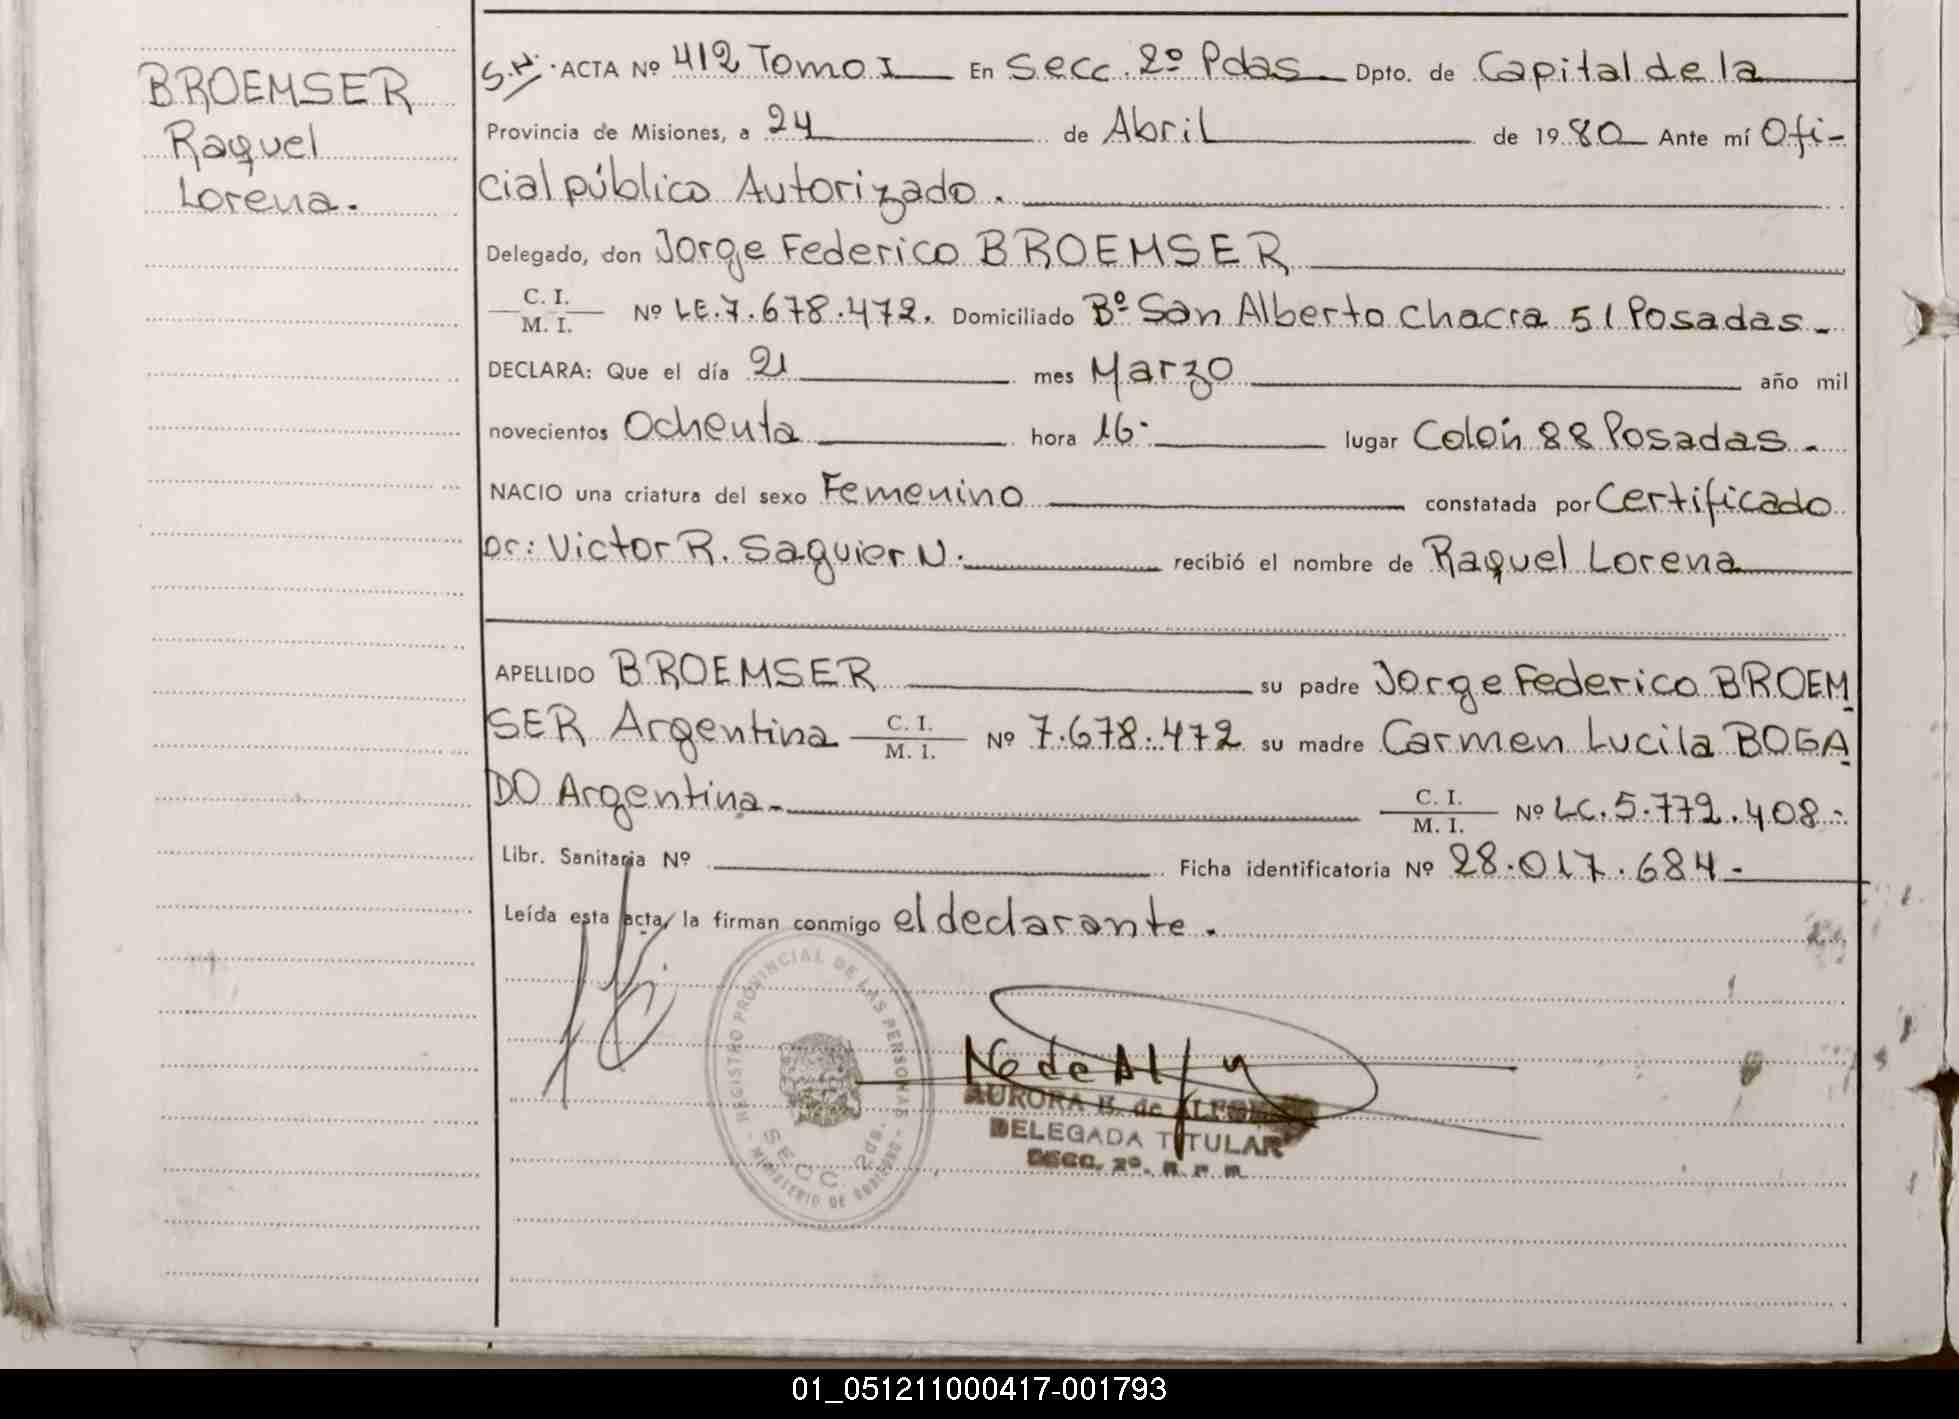 BROEMSER
Raquel
Lorena.
S.N. ACTA Nº 412 Tomo I En Secc. 2º Pdas Dpto. de Capital de la
Provincia de Misiones, a 24 de Abril de 1980 Ante mí Ofi-
cial público Autorizado.
Delegado, don Jorge Federico BROEMSER
C. I.
M. I. Nº LE.7.678.472. Domiciliado Bº San Alberto Chacra 51 Posadas-
DECLARA: Que el día 21 mes Marzo año mil
novecientos Ochenta hora 16· lugar Colón 88 Posadas-
NACIO una criatura del sexo Femenino constatada por Certificado
Dr: Victor R. Saguier N. recibió el nombre de Raquel Lorena
APELLIDO BROEMSER su padre Jorge Federico BROEM
SER Argentina C. I. M. I. Nº 7.678.472 su madre Carmen Lucila BOGA
DO Argentina- C. I. M. I. Nº LC.5.772.408-
Libr. Sanitaria Nº Ficha identificatoria Nº 28.017.684-
Leída esta acta, la firman conmigo el declarante.
REGISTRO PROVINCIAL DE LAS PERSONAS
SECC. 2da.
MINISTERIO DE GOBIERNO
AURORA N. de
DELEGADA TITULAR
SECC. 2º. R. P. P.
01_051211000417-001793